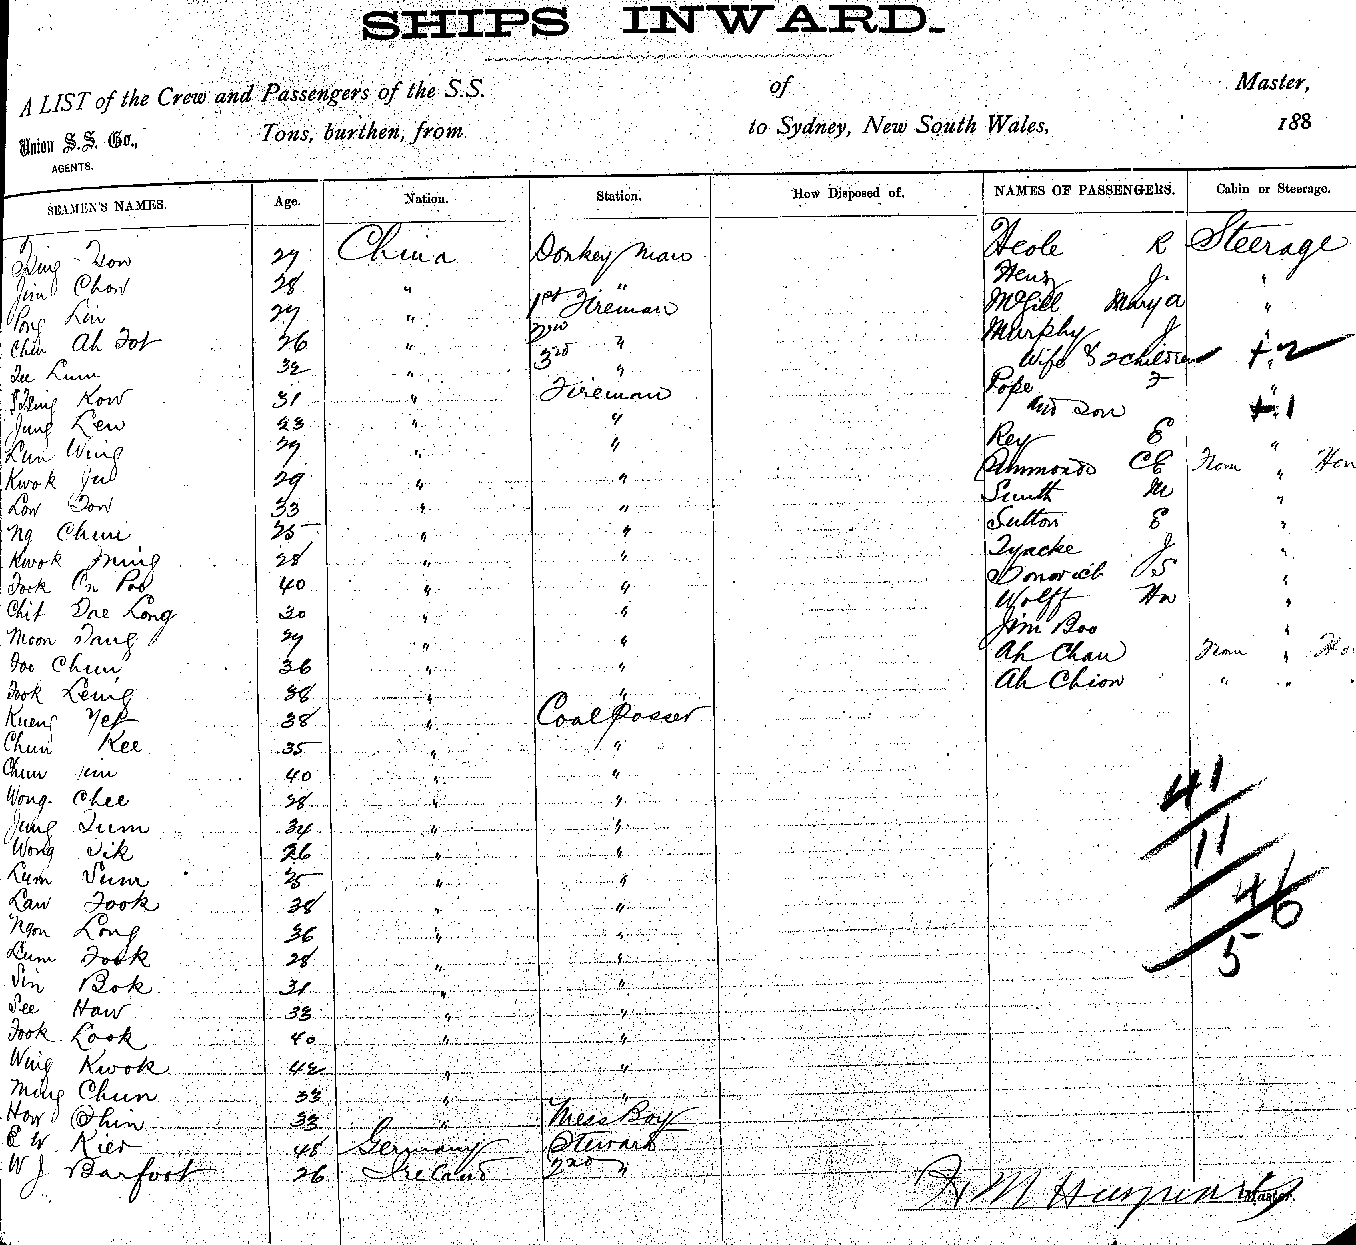 SHIPS INWARD.
A LIST of the Crew and Passengers of the S.S. of Master,
Union S.S. Co., Tons, burthen, from to Sydney, New South Wales, 188
AGENTS.
SEAMEN'S NAMES. Age. Nation. Station. How Disposed of. NAMES OF PASSENGERS. Cabin or Steerage.
27 China Donkey Man Heole R Steerage
Jim Chow 28 " " Henry J. "
Pong Lin 27 " 1st Fireman McGill Mary A "
Chin Ah Fot 26 " 2nd " Murphy J "
Lum 32 " 3rd " Wife & 2 children +2
Kow 31 " Fireman Pope "
Jung Len 23 " " and Son +1
Lun Wing 29 " " Rey E "
Kwok 29 " " Ammonds CE From " Hon
Low 33 " " Smith M "
Ng Chun 25 " " Sutton E "
Kwok Ming 28 " " Tyacke J "
Fook On Poo 40 " " S "
Chit Dae Long 30 " " Wolff Hn "
Moon Fang 29 " " Jim Boo "
Foo Chun 36 " " Ah Chau From " Ho
Fook Leing 38 " " Ah Chion " "
Kueng Yep 38 " Coal Passer
Chun Kee 35 " "
Chun 40 " "
Wong Chee 28 " " 41
Jung Lum 34 " " 11
Wong Sik 26 " " 46
Lum Sum 25 " " 5
Law Fook 28 " "
Ngon Long 36 " "
Lum Fook 28 " "
Sin Bok 31 " "
See How 33 " "
Fook Look 40 " "
Wing Kwok 42 " "
Ming Chun 33 " "
How Chin 33 " Mess Boy
E W Kier 48 Germany Steward
W J Barfoot 26 Ireland 2nd "
Master.